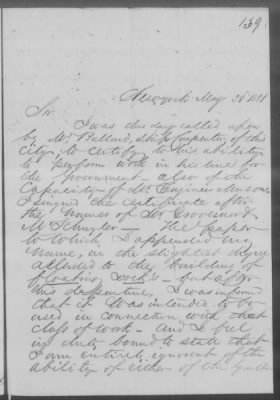 139
New York May 28
Sir.
I was this day called upon
by Mr. Ballard, Ship Carpenter of this
City, to certify to his ability
to perform work in his line for
the Government – also of the
Capacity of Mr. Engineer
I signed the certificate after
the names of Mr Grosvenor &
M Schuyler – the paper
to which I appended my
name, in the slightest degree
alluded to the building of
floating docks – but after
his departure, I was informed
that it was intended to be
used in connection with that
class of work – and I feel
in duty bound to state that
I am entirely ignorant of the
ability of either of the